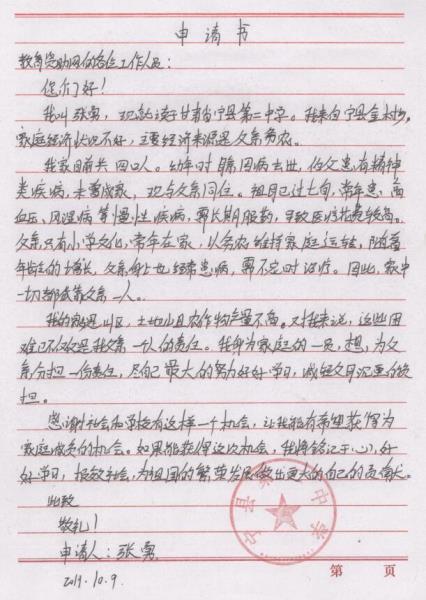 申请书
教育资助网的各位工作人员：
您们好！
我叫张勇，现就读于甘肃省宁县第二中学。我来自宁县金村乡。
家庭经济状况不好，主要经济来源是父亲务农。
我家目前共四口人。幼年时母亲因病去世，伯父患有精神
类疾病，未曾成家，现与父亲同住。祖母已过七旬，常年患高
血压、风湿病等慢性疾病，需长期服药，导致医疗花费较高。
父亲只有小学文化，常年在家，以务农维持家庭运转，随着
年龄的增长，父亲身上也经常患病，需不定时治疗。因此，家中
一切都依靠父亲一人。
我的家乡是山区，土地少且农作物产量不高。对我来说，这些困
难已不仅是我父亲一人的责任。我身为家庭的一员，想为父
亲分担一份责任，尽自己最大的努力好好学习，减轻父母沉重的负
担。
感谢社会和学校有这样一个机会，让我能有希望获得为
家庭减负的机会。如果能获得这次机会，我将铭记于心，好
好学习，报效社会，为祖国的繁荣发展做出更大的自己的贡献。
此致
敬礼！
申请人：张勇
2019.10.9.
宁县第二中学
第 页